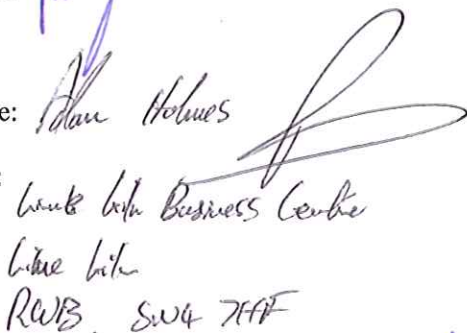 e: Adam Holmes
Business Centre
Lime Kiln
RWB SN4 7HF